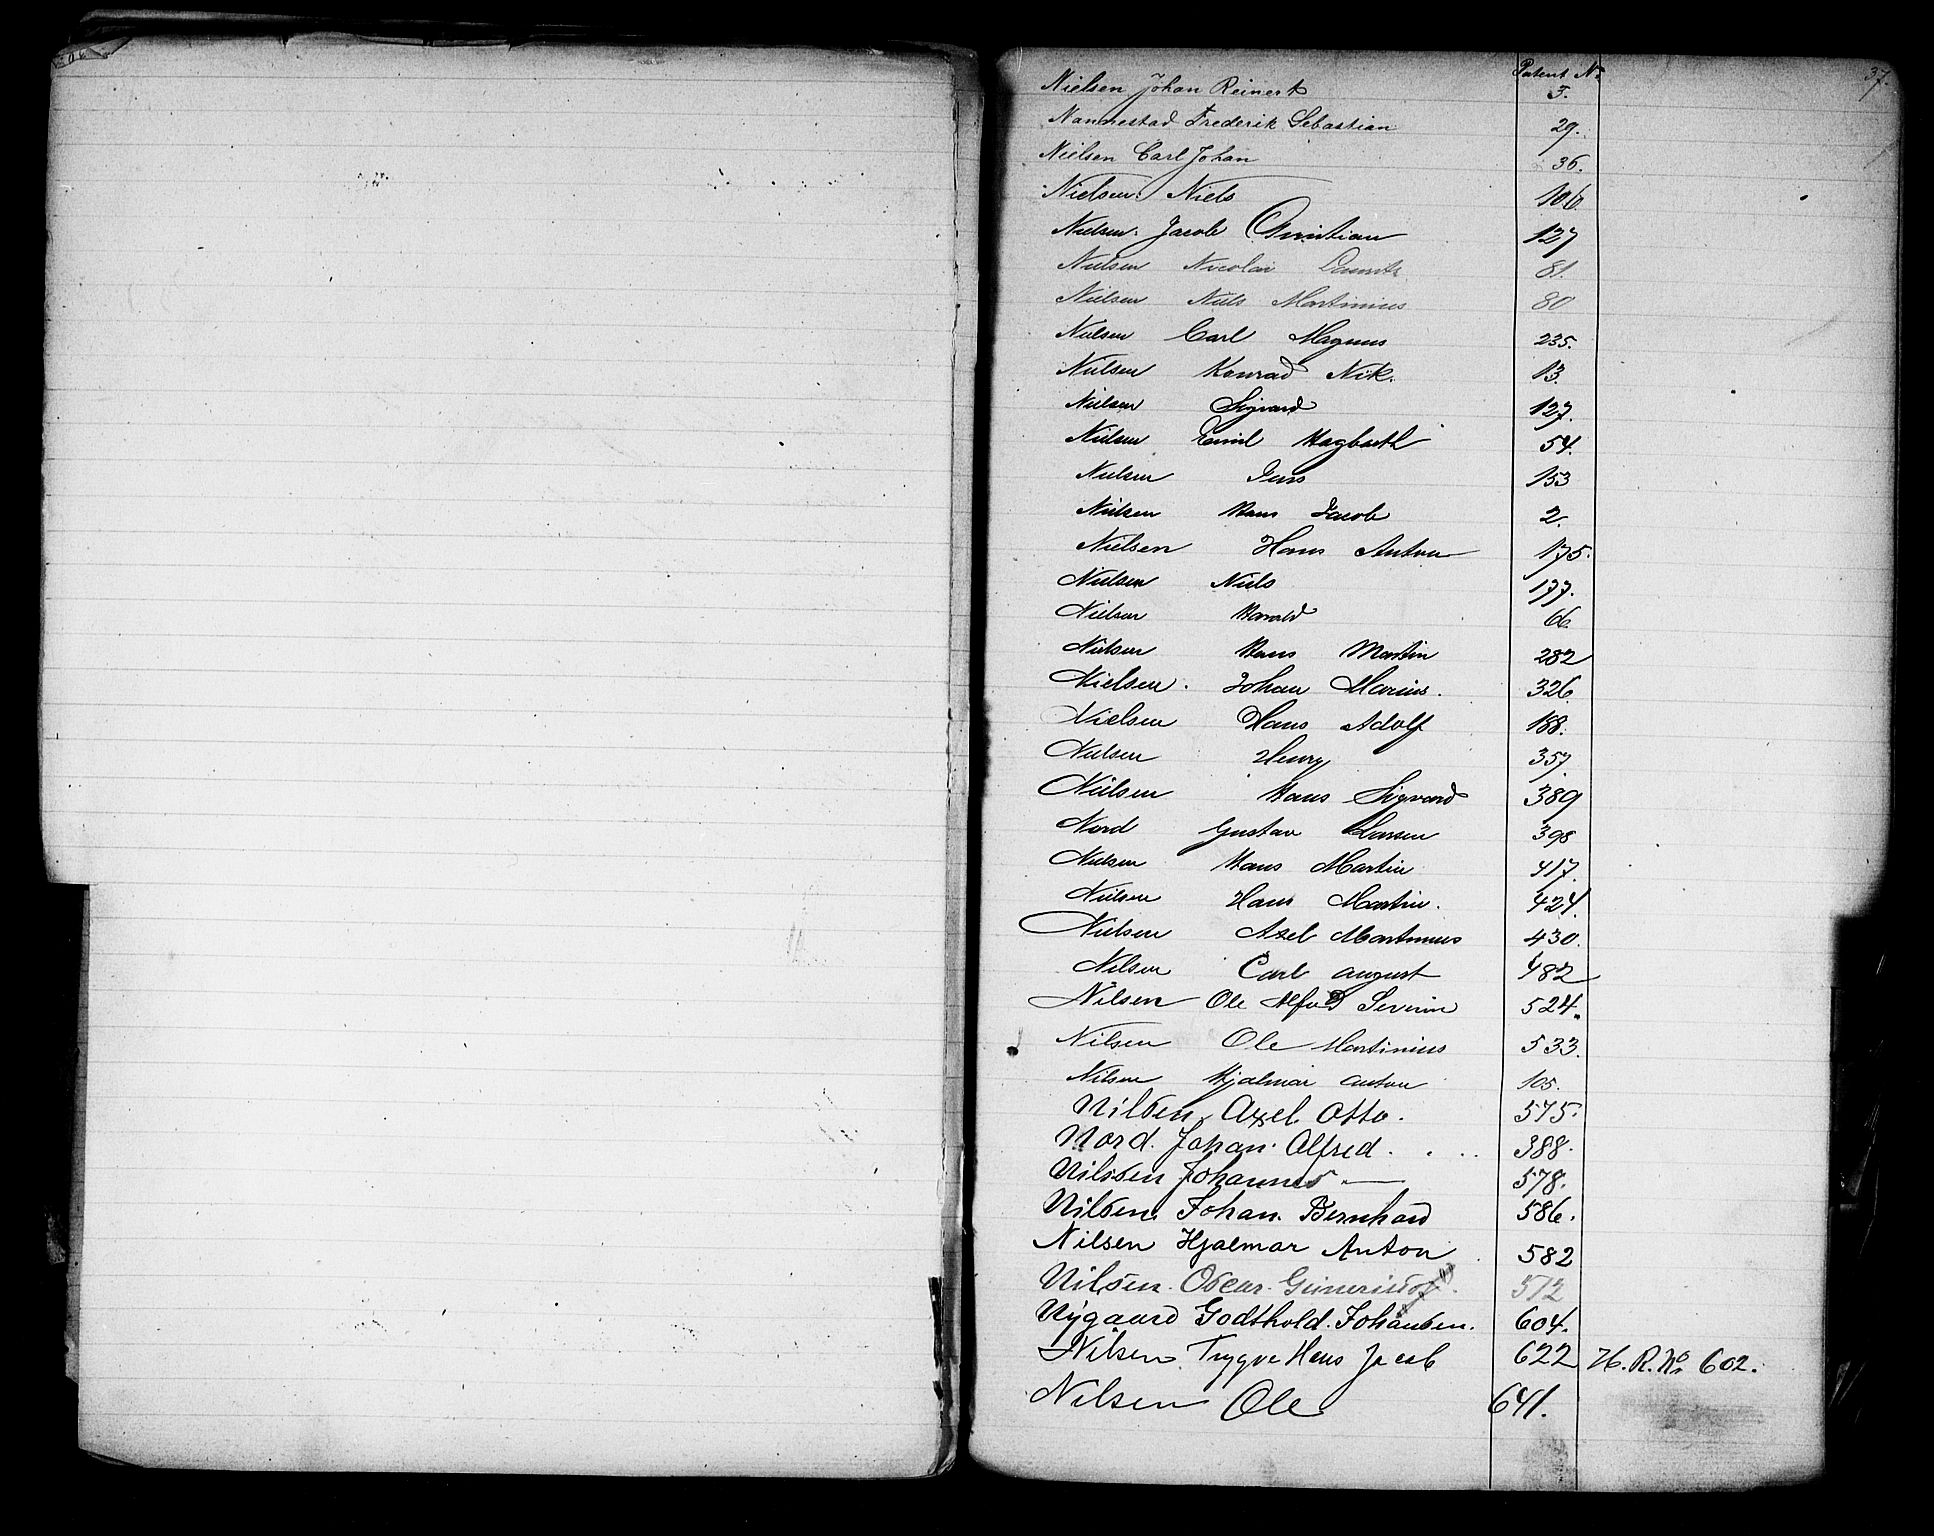 Patent No 37.
Nielsen Johan Reinert 5.
Nannestad Frederik Sebastian 29.
Nielsen Carl Johan 36.
Nielsen Niels 106.
Nielsen Jacob Christian 127
Nielsen Nicolai Lauritz 81.
Nielsen Niels Martinius 80
Nielsen Carl Magnus 235.
Nielsen Konrad Nik. 13.
Nielsen Sigvard 127.
Nielsen Emil Hagbarth 54.
Nielsen Jens 153
Nielsen Hans Jacob 2.
Nielsen Hans Anton 175.
Nielsen Niels 177.
Nielsen Harald 66.
Nielsen Hans Martin 282
Nielsen. Johan Marius. 326.
Nielsen Hans Adolf 188.
Nielsen Henry 357
Nielsen Hans Sigvard 389
Nord Gustav Larsen 398
Nielsen Hans Martin 417.
Nielsen Hans Martin. 424.
Nielsen Axel Martinius 430.
Nilsen Carl August 482
Nilsen Ole Severin 524.
Nilsen Ole Martinius 533.
Nilsen Hjalmar Anton 105.
Nilsen, Axel Otto. 575.
Nord. Johan Alfred. . . . 388.
Nilssen Johannes — 578.
Nilsen. Johan. Bernhard 586.
Nilsen Hjalmar Anton 582
Nilsen. Oscar. 512
Nygaard Godthold. Johansen. 604.
Nilsen. Trygve Hans Jacob 622 H. R. No 602.
Nilsen Ole 641.